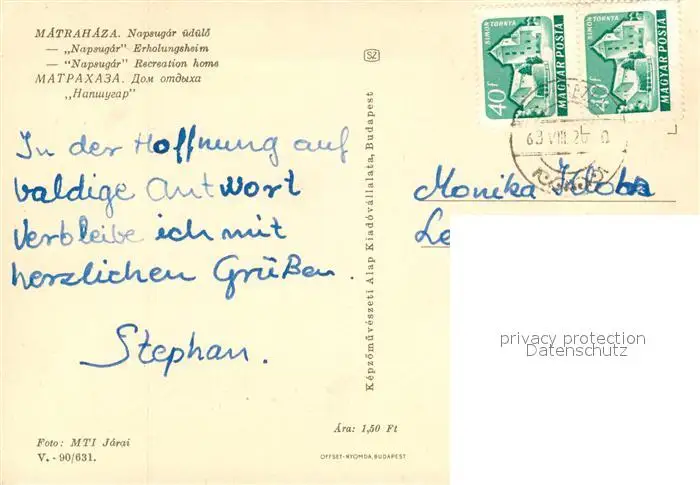 MÁTRAHÁZA. Napsugár üdülő
— „Napsugár" Erholungsheim
— "Napsugár" Recreation home
МАТРАХАЗА. Дом отдыха
„Напшугар"
In der Hoffnung auf
baldige Antwort
verbleibe ich mit
herzlichen Grüßen.
Stephan.
Foto: MTI Járai
V. - 90/631.
SZ
Képzőművészeti Alap Kiadóvállalata, Budapest
Ára: 1,50 Ft
OFFSET-NYOMDA, BUDAPEST
SIMON TORNYA
40f
MAGYAR POSTA
SIMON TORNYA
40f
MAGYAR POSTA
63 VIII. 26
Monika
privacy protection
Datenschutz